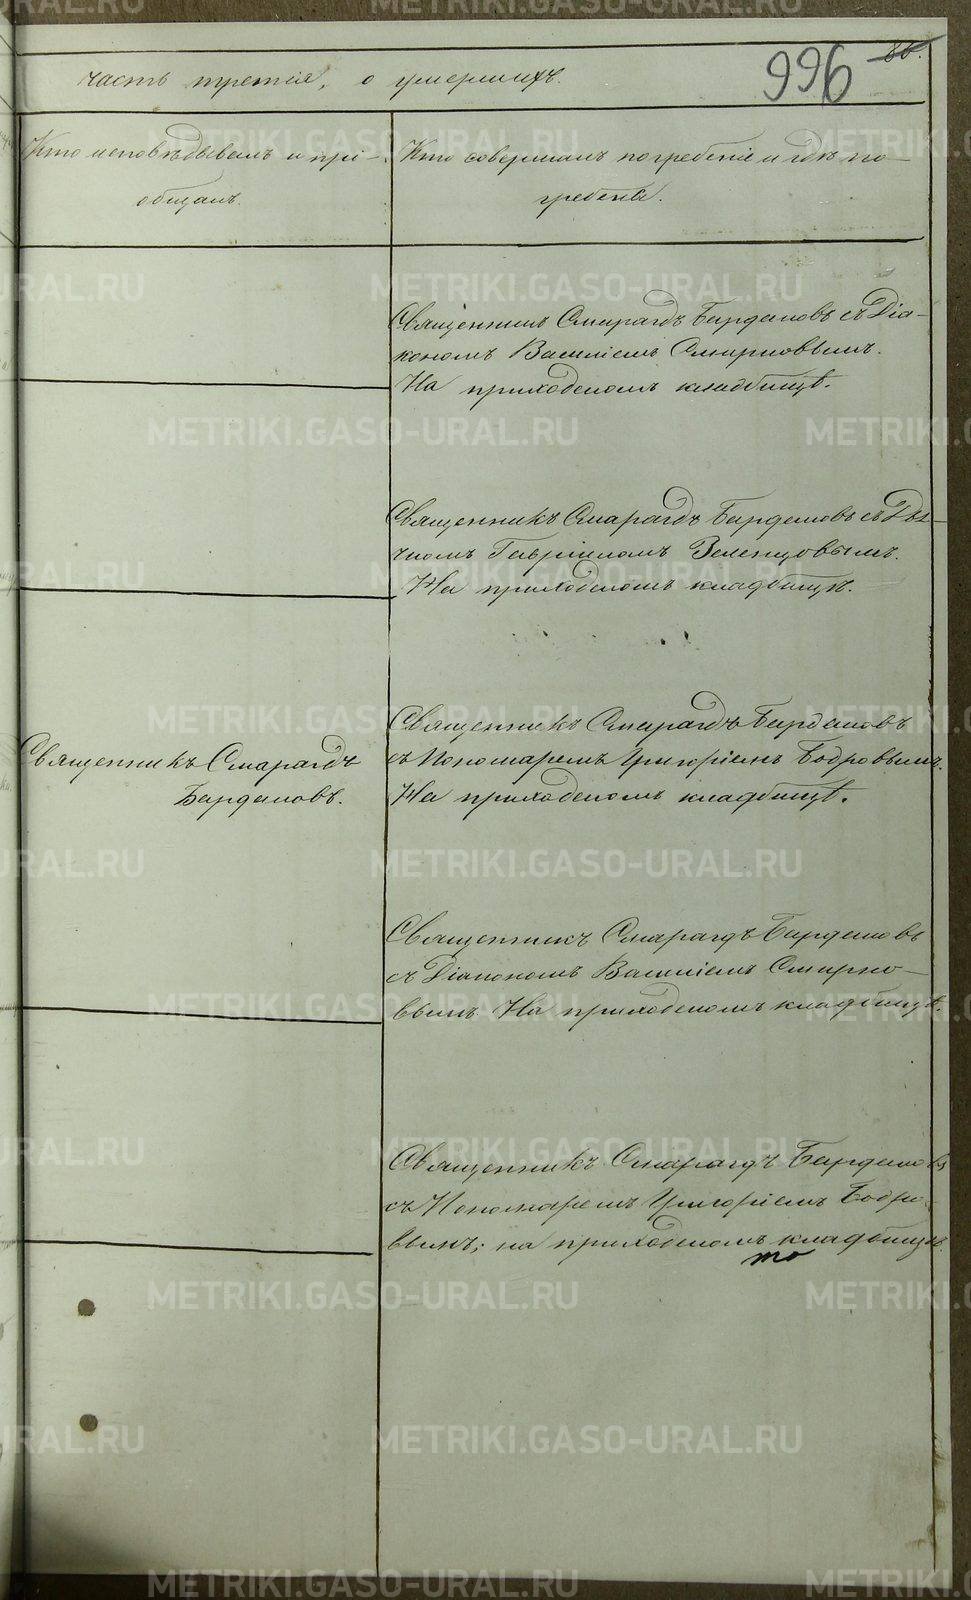 996
86.
часть третія, о умершихъ.
Кто исповѣдывалъ и прі-
общалъ.
Кто совершалъ погребеніе и гдѣ по-
гребены.
Священникъ Смарагдъ Бардаковъ съ Діа-
кономъ Василіемъ Смирновымъ.
На приходскомъ кладбищѣ.
Священникъ Смарагдъ Бардаковъ съ Дья-
чкомъ Гавріиломъ Зеленцовымъ.
На приходскомъ кладбищѣ.
Священникъ Смарагдъ
Бардаковъ.
Священникъ Смарагдъ Бардаковъ
съ Пономаремъ Григоріемъ Бодровымъ.
На приходскомъ кладбищѣ.
Священникъ Смарагдъ Бардаковъ
съ Діакономъ Василіемъ Смирно-
вымъ На приходскомъ кладбищѣ.
Священникъ Смарагдъ Бардаковъ
съ Пономаремъ Григоріемъ Бодро-
вымъ; на приходскомъ кладбищѣ.
то
METRIKI.GASO-URAL.RU